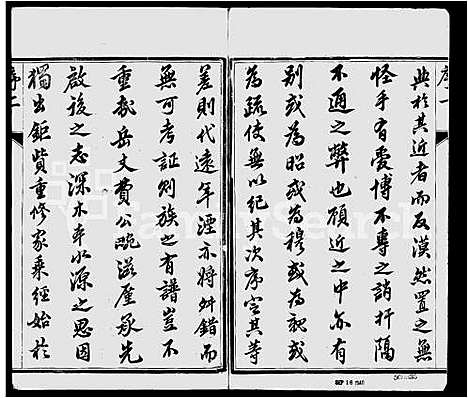 序一
典於其近者而反漠然置之無
怪乎有愛博不專之誚扞隔
不通之弊也顧近之中亦有
別或為昭或為穆或為親或
為疏使無以紀其次序定其等
差則代遠年湮亦將舛錯而
無可考証則族之有譜豈不
重哉岳文費公晼滋屋承先
啟後之志深木本水源之思因
獨出鉅貲重修家乘經始於
序二
FamilySearch
SEP 16 1981